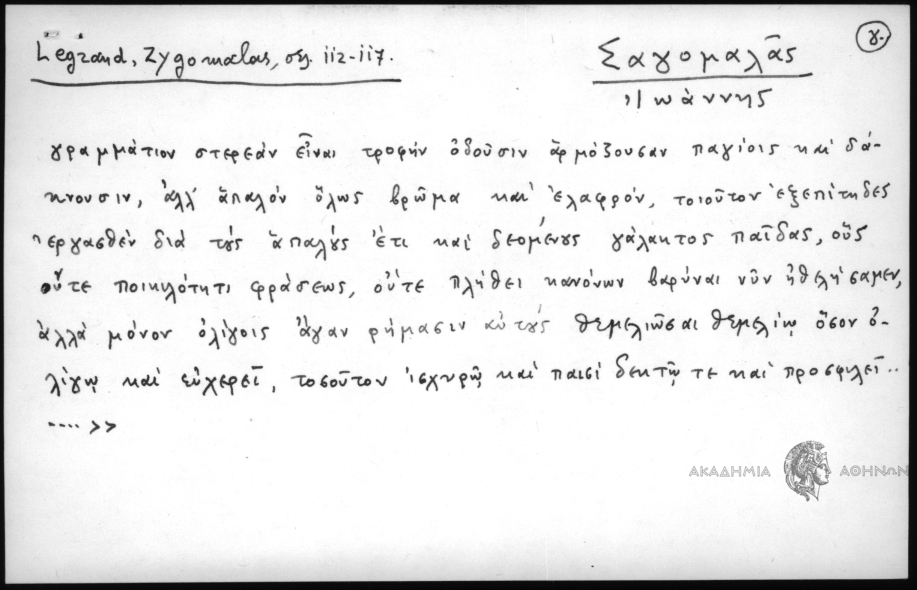 γ.
Legrand, Zygomalas, σελ. 112-117.
Σαγομαλᾶς
Ἰωάννης
γραμμάτιον στερεάν εἶναι τροφήν ὀδοῦσιν ἁρμόζουσαν παγίοις καί δά-
κνουσιν, ἀλλ' ἁπαλόν ὅλως βρῶμα καί ἐλαφρόν, τοιοῦτον ἐξεπίτηδες
ἐργασθέν διά τούς ἁπαλούς ἔτι καί δεομένους γάλακτος παῖδας, οὕς
οὔτε ποικιλότητι φράσεως, οὔτε πλήθει κανόνων βαρύναι νῦν ἠθελήσαμεν,
ἀλλά μόνον ὀλίγοις ἄγαν ρήμασιν αὐτούς θεμελιῶσαι θεμελίῳ ὅσον ὀ-
λίγῳ καί εὐχερεῖ, τοσοῦτον ἰσχυρῷ καί παισί δεκτῷ τε καί προσφιλεῖ..
....>>
ΑΚΑΔΗΜΙΑ ΑΘΗΝΩΝ